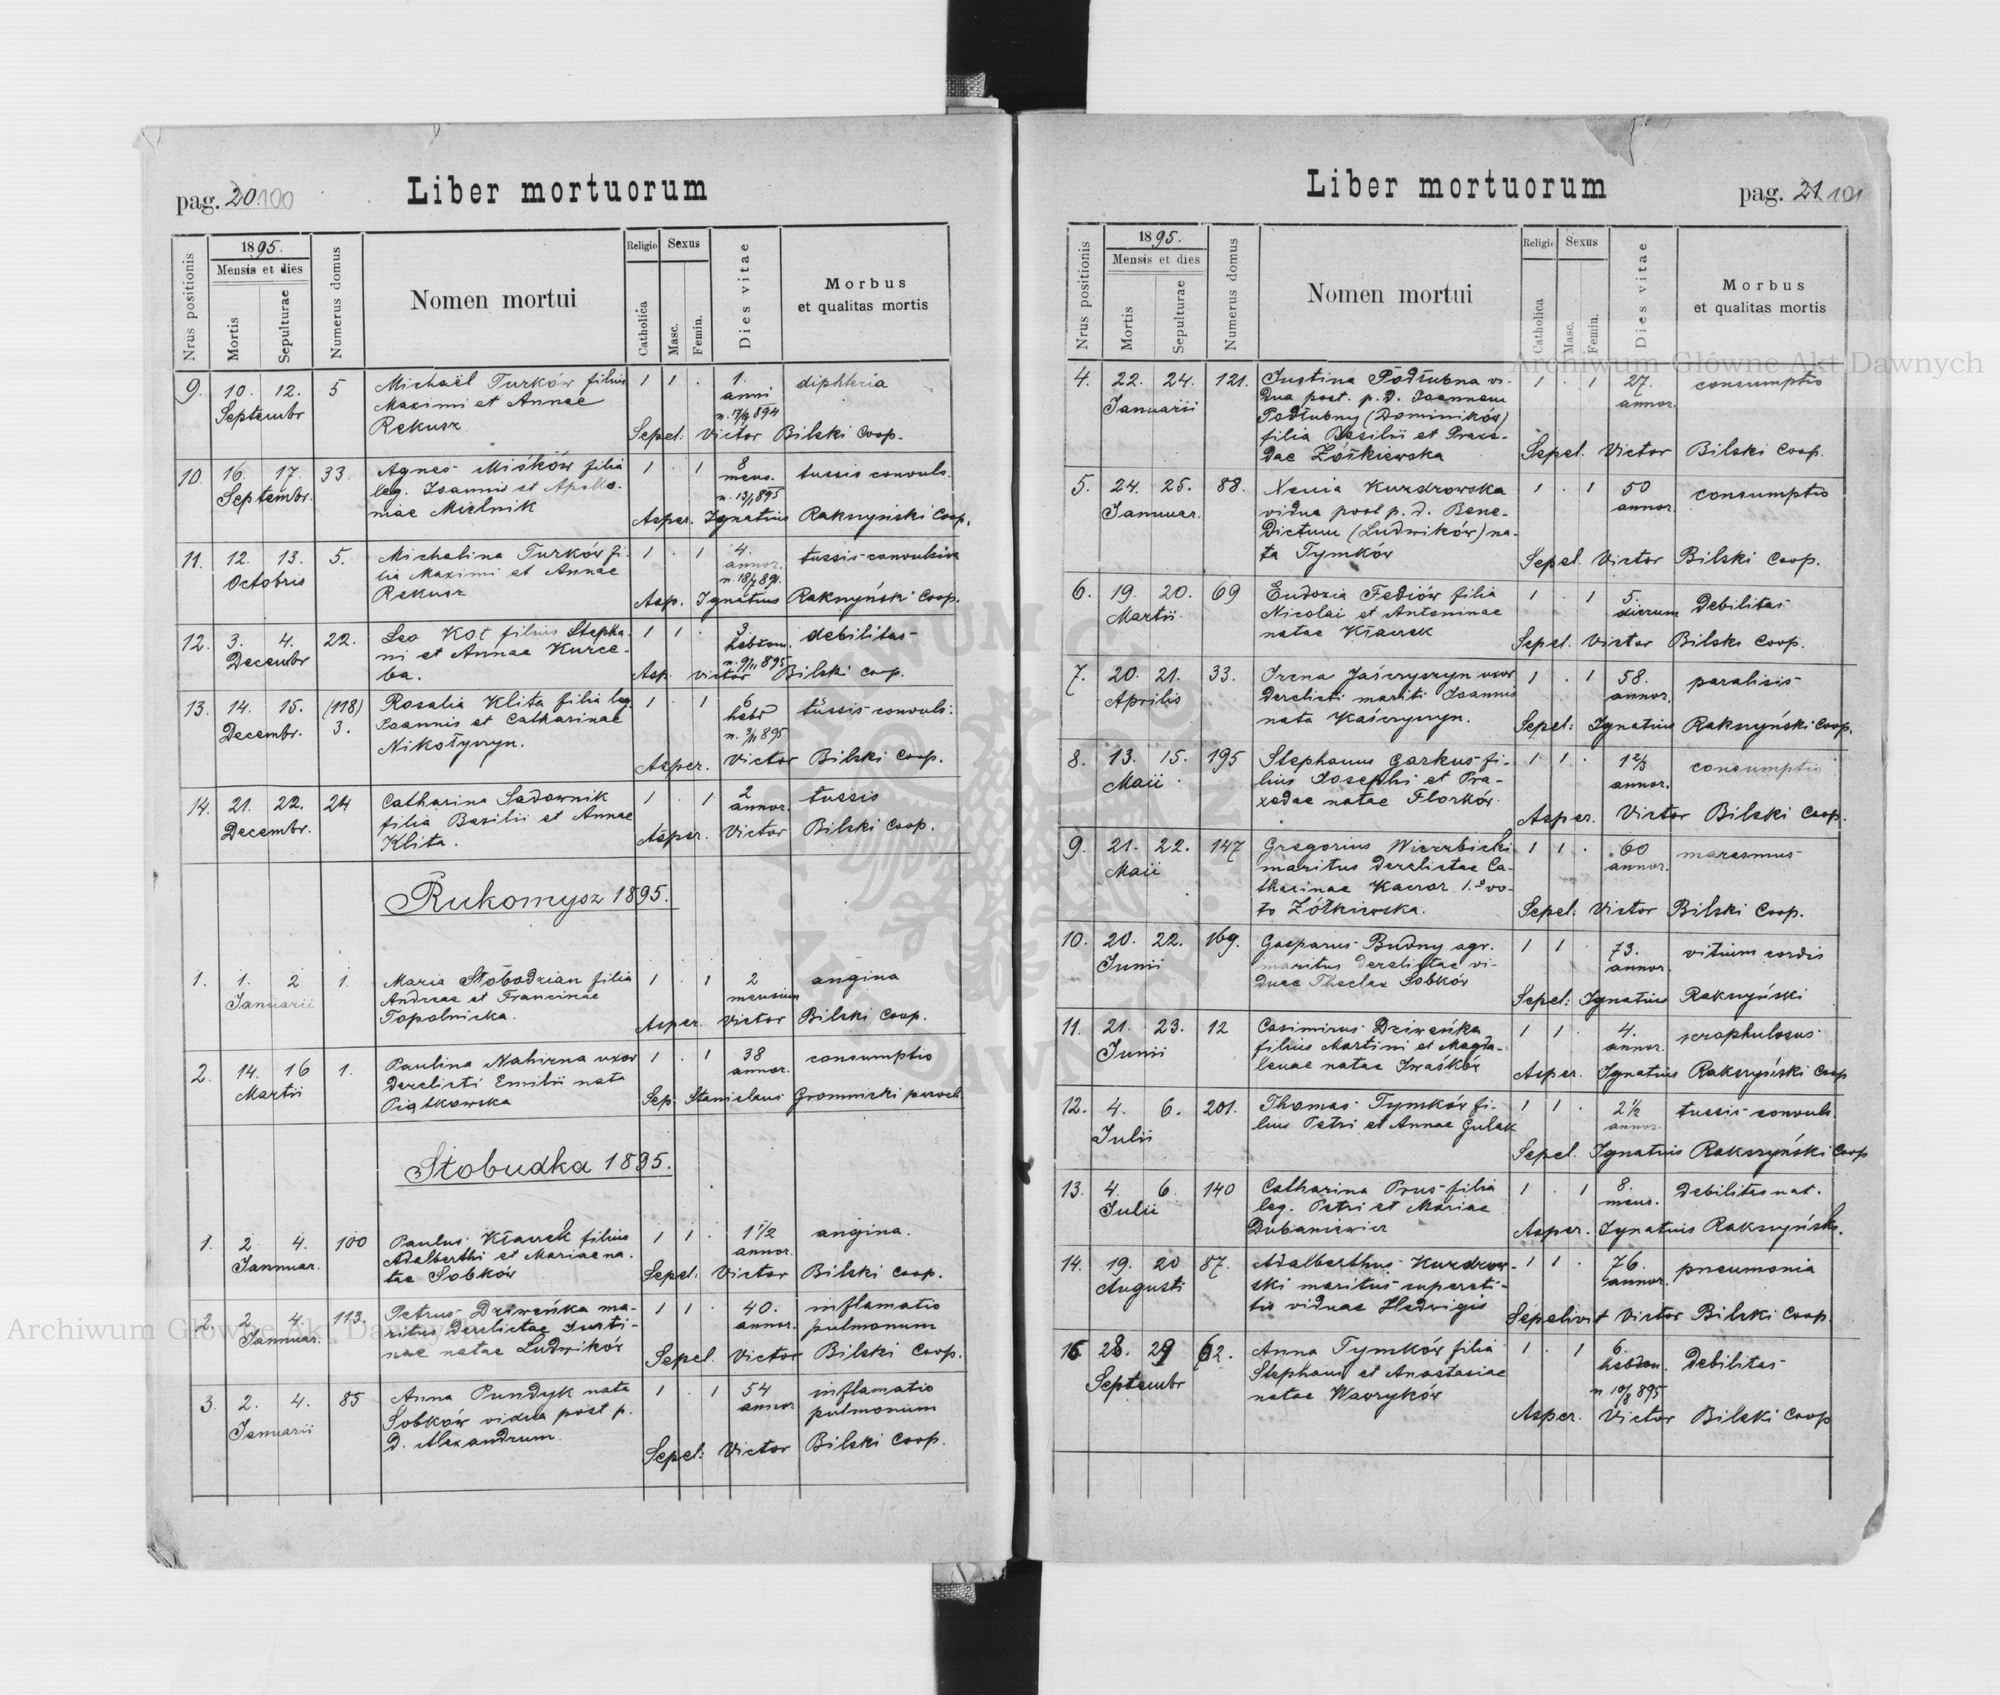 pag. 20. 100
Liber mortuorum
1895.
Nrus positionis
Mensis et dies
Mortis
Sepulturae
Numerus domus
Nomen mortui
Religio
Catholica
Sexus
Masc.
Femin.
Dies vitae
Morbus
et qualitas mortis
9. 10. 12. 5 Michaël Turków filius 1 1 . 1. diphteria
Septembr Maximi et Annae anni
Rekusz n. 17/9 894
Sepel: Victor Bilski Coop.
10. 16. 17. 33. Agnes Miśków filia 1 . 1 8 tussis convuls.
Septembr. leg. Ioannis et Apollo- mens.
niae Mielnik n. 13/1 895
Asper. Ignatius Rakszyński Coop.
11. 12. 13. 5. Michalina Turków fi- 1 . 1 4. tussis convulsiva
Octobris lia Maximi et Annae annor.
Rekusz n. 18/7 891.
Asp. Ignatius Rakszyński Coop.
12. 3. 4. 22. Leo Kot filius Stepha- 1 1 . 3. debilitas
Decembr ni et Annae Kurce- hebdom.
ba. n. 9/11 895
Asp. Victor Bilski Coop.
13. 14. 15. (118) Rosalia Klita filia leg. 1 . 1 6 tussis convuls.
Decembr. 3. Ioannis et Catharinae hebd
Nikołyszyn. n. 3/11 895
Asper. Victor Bilski Coop.
14. 21. 22. 24 Catharina Sadownik 1 . 1 2 tussis
Decembr. filia Basilii et Annae annor.
Klita.
Asper. Victor Bilski Coop.
Rukomysz 1895.
1. 1. 2 1. Maria Słobodzian filia 1 . 1 2 angina
Januarii Andreae et Francinae mensium
Topolnicka.
Asper. Victor Bilski Coop.
2. 14. 16 1. Paulina Nahirna uxor 1 . 1 38 consumptio
Martii derelicti Emilii nata annor.
Piątkowska
Sep. Stanislaus Gromnicki paroch.
Słobudka 1895.
1. 2. 4. 100 Paulus Kławek filius 1 1 . 1 1/2 angina.
Januar. Adalberthi et Mariae na- annor.
tae Sobków
Sepel: Victor Bilski Coop.
2. 2. 4. 113. Petrus Dziweńka ma- 1 1 . 40. inflamatio
Januar. ritus derelictae Iusti- annor. pulmonum
nae natae Ludwików
Sepel. Victor Bilski Coop.
3. 2. 4. 85 Anna Pundyk nata 1 . 1 54 inflamatio
Januarii Sobków vidua post p. annor pulmonum
d. Alexandrum.
Sepel: Victor Bilski Coop.
Liber mortuorum
pag. 21 101
1895.
Nrus positionis
Mensis et dies
Mortis
Sepulturae
Numerus domus
Nomen mortui
Religio
Catholica
Sexus
Masc.
Femin.
Dies vitae
Morbus
et qualitas mortis
4. 22. 24. 121. Iustina Podłubna vi- 1 . 1 27. consumptio
Ianuarii dua post. p. d. Ioannem annor.
Podłubny (Dominików)
filia Basilii et Praxe-
dae Żółkiewska
Sepel. Victor Bilski Coop.
5. 24. 25. 88. Xenia Kurdrowska 1 . 1 50 consumptio
Ianuar. vidua post p. d. Bene- annor.
dictum (Ludwików) na-
ta Tymków
Sepel. Victor Bilski Coop.
6. 19. 20. 69 Eudoxia Fediów filia 1 . 1 5. debilitas
Martii Nicolai et Antoninae dierum
natae Kławek
Sepel. Victor Bilski Coop.
7. 20. 21. 33. Irena Jaśczyszyn uxor 1 . 1 58. paralisis
Aprilis derelicti mariti Ioannis annor.
nata Kaśczyszyn.
Sepel: Ignatius Rakszyński Coop.
8. 13. 15. 195 Stephanus Garkus fi- 1 1 . 1 2/3 consumptio
Maii lius Iosephi et Pra- annor.
xedae natae Florków
Asper. Victor Bilski Coop.
9. 21. 22. 147 Gregorius Wierzbicki 1 1 . 60 marasmus
Maii maritus derelictae Ca- annor.
tharinae Kaczor 1.o vo-
to Żółkiewska.
Sepel: Victor Bilski Coop.
10. 20. 22. 169. Gasparus Budny agr. 1 1 . 73. vitium cordis
Iunii maritus derelictae vi- annor.
duae Theclae Sobków
Sepel: Ignatius Rakszyński
11. 21. 23. 12 Casimirus Dziweńka 1 1 . 4. scrophulosus
Iunii filius Martini et Magda- annor.
lenae natae Iwaśków
Asper. Ignatius Rakszyński Coop
12. 4. 6. 201. Thomas Tymków fi- 1 1 . 2 1/2 tussis convuls.
Iulii lius Petri et Annae Gulak annor.
Sepel. Ignatius Rakszyński Coop
13. 4. 6. 140 Catharina Prus filia 1 . 1 8. debilitas nat.
Iulii leg. Petri et Mariae mens.
Dubaniewicz
Asper. Ignatius Rakszyński.
14. 19. 20 87. Adalberthus Kurdrow- 1 1 . 76. pneumonia
Augusti ski maritus supersti- annor.
tis viduae Hedvigis
Sepelivit Victor Bilski Coop.
15. 28. 29 62. Anna Tymków filia 1 . 1 6. debilitas
Septembr Stephani et Anastasiae hebdom.
natae Wawryków n. 10/8 895
Asper. Victor Bilski Coop
Archiwum Główne Akt Dawnych
Archiwum Główne Akt Dawnych